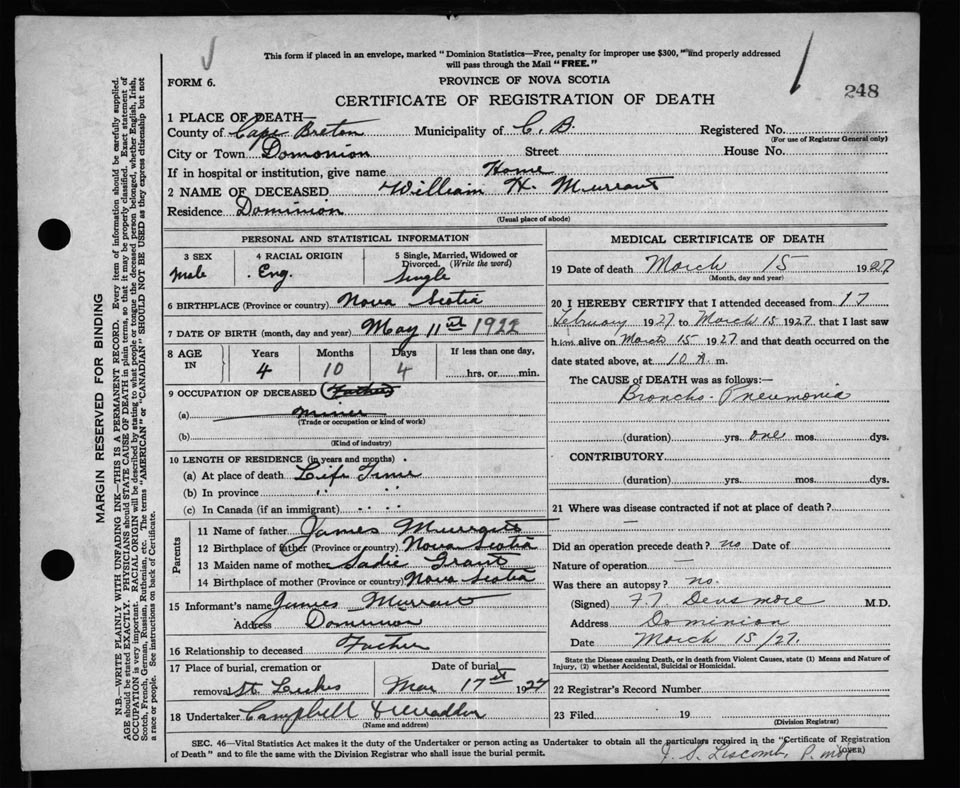 This form if placed in an envelope, marked "Dominion Statistics—Free, penalty for improper use $300," and properly addressed
will pass through the Mail "FREE."
FORM 6.
PROVINCE OF NOVA SCOTIA
248
CERTIFICATE OF REGISTRATION OF DEATH
1 PLACE OF DEATH—
County of Cape Breton Municipality of C. B. Registered No.
(For use of Registrar General only)
City or Town Domonion Street House No.
If in hospital or institution, give name Home
2 NAME OF DECEASED William H. Murrant
Residence Dominion
(Usual place of abode)
PERSONAL AND STATISTICAL INFORMATION
3 SEX 4 RACIAL ORIGIN 5 Single, Married, Widowed or
Divorced. (Write the word)
Male Eng. Single
6 BIRTHPLACE (Province or country) Nova Scotia
7 DATE OF BIRTH (month, day and year) May 11th 1922
8 AGE IN Years Months Days If less than one day,
4 10 4 hrs. or min.
9 OCCUPATION OF DECEASED (Father)
(a) miner
(Trade or occupation or kind of work)
(b)
(Kind of industry)
10 LENGTH OF RESIDENCE (in years and months)
(a) At place of death Life Time
(b) In province " "
(c) In Canada (if an immigrant)
Parents
11 Name of father James Murrant
12 Birthplace of father (Province or country) Nova Scotia
13 Maiden name of mother Sadie Grant
14 Birthplace of mother (Province or country) Nova Scotia
15 Informant's name James Murrant
Address Dominion
16 Relationship to deceased Father
17 Place of burial, cremation or Date of burial
removal St. Lukes Mar 17 1927
18 Undertaker Campbell
(Name and address)
MEDICAL CERTIFICATE OF DEATH
19 Date of death March 15 1927
(Month, day and year)
20 I HEREBY CERTIFY that I attended deceased from 17
February 1927 to March 15 1927 that I last saw
him alive on March 15 1927 and that death occurred on the
date stated above, at 10 A m.
The CAUSE of DEATH was as follows:—
Broncho-Pneumonia
(duration) yrs. one mos. dys.
CONTRIBUTORY
(duration) yrs. mos. dys.
21 Where was disease contracted if not at place of death?
—
Did an operation precede death? no Date of
Nature of operation —
Was there an autopsy? no.
(Signed) Densmore M.D.
Address Dominion
Date March 15/27.
State the Disease causing Death, or in death from Violent Causes, state (1) Means and Nature of
Injury, (2) whether Accidental, Suicidal or Homicidal.
22 Registrar's Record Number
23 Filed 19
(Division Registrar)
SEC. 46—Vital Statistics Act makes it the duty of the Undertaker or person acting as Undertaker to obtain all the particulars required in the "Certificate of Registration
of Death" and to file the same with the Division Registrar who shall issue the burial permit.
(OVER)
J. S. Liscomb,
MARGIN RESERVED FOR BINDING
N.B.—WRITE PLAINLY WITH UNFADING INK—THIS IS A PERMANENT RECORD. Every item of information should be carefully supplied.
AGE should be stated EXACTLY. PHYSICIANS should STATE CAUSE OF DEATH in plain terms, so that it may be properly classified. Exact statement of
OCCUPATION is very important. RACIAL ORIGIN will be described by stating to what people or tongue the deceased person belonged, whether English, Irish,
Scotch, French, German, Russian, Ruthenian, etc. The terms "AMERICAN" or "CANADIAN" SHOULD NOT BE USED as they express citizenship but not
a race or people. See instructions on back of Certificate.